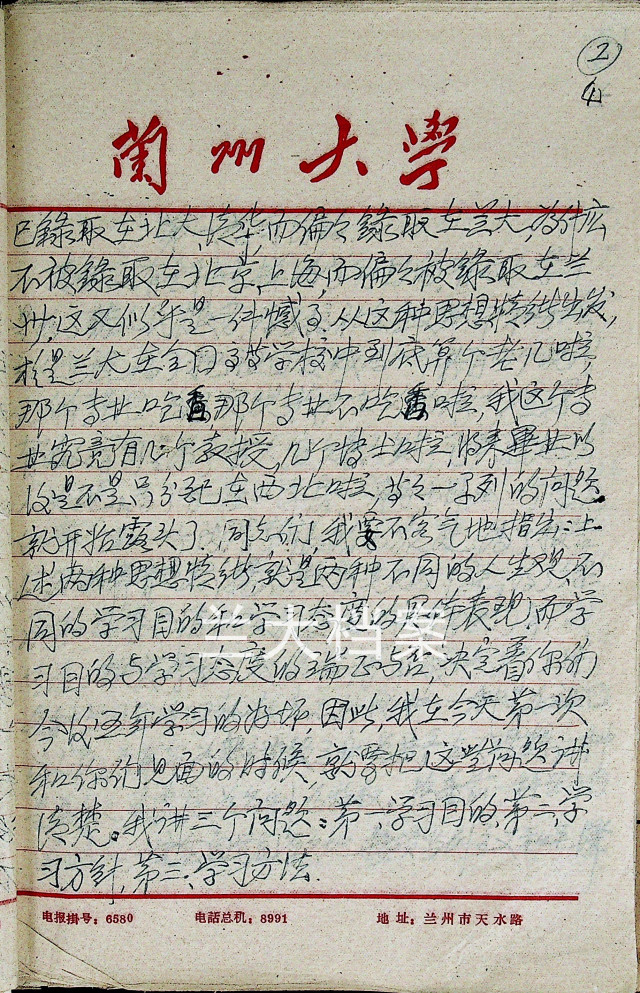 2
4
蘭州大學
已錄取在北大,清华,而偏々錄取在兰大,為什么
不被錄取在北京,上海,而偏々被錄取在兰
州,这又似乎是一件憾事,从这种思想情绪出发,
于是兰大在全国高等学校中到底算个老几啦,
那个专业吃香那个专业不吃香啦,我这个专
业究竟有几个教授,几个博士啦,将来畢业以
后是不是只分配在西北啦,等々一系列的问题
就开始露头了,同学们,我要不客气地指出:上
述两种思想情绪,就是两种不同的人生观,不
同的学习目的和学习态度的具体表现,而学
习目的与学习态度的端正与否,决定着你们
今后五年学习的好坏,因此,我在今天第一次
和你们见面的时候,就要把这些问题讲
清楚。我讲三个问题:第一、学习目的,第二、学
习方針,第三、学习方法.
兰大档案
电报掛号:6580 电話总机:8991 地址:兰州市天水路